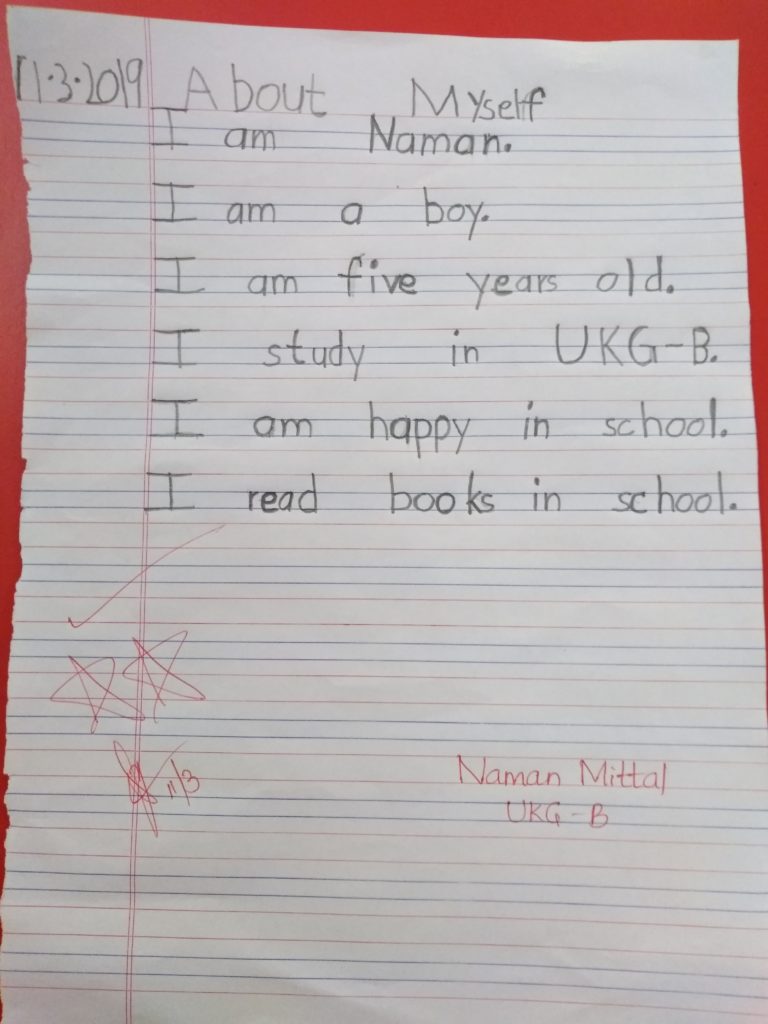 11.3.2019 About Myself
I am Naman.
I am a boy.
I am five years old.
I study in UKG-B.
I am happy in school.
I read books in school.
11/3
Naman Mittal
UKG-B